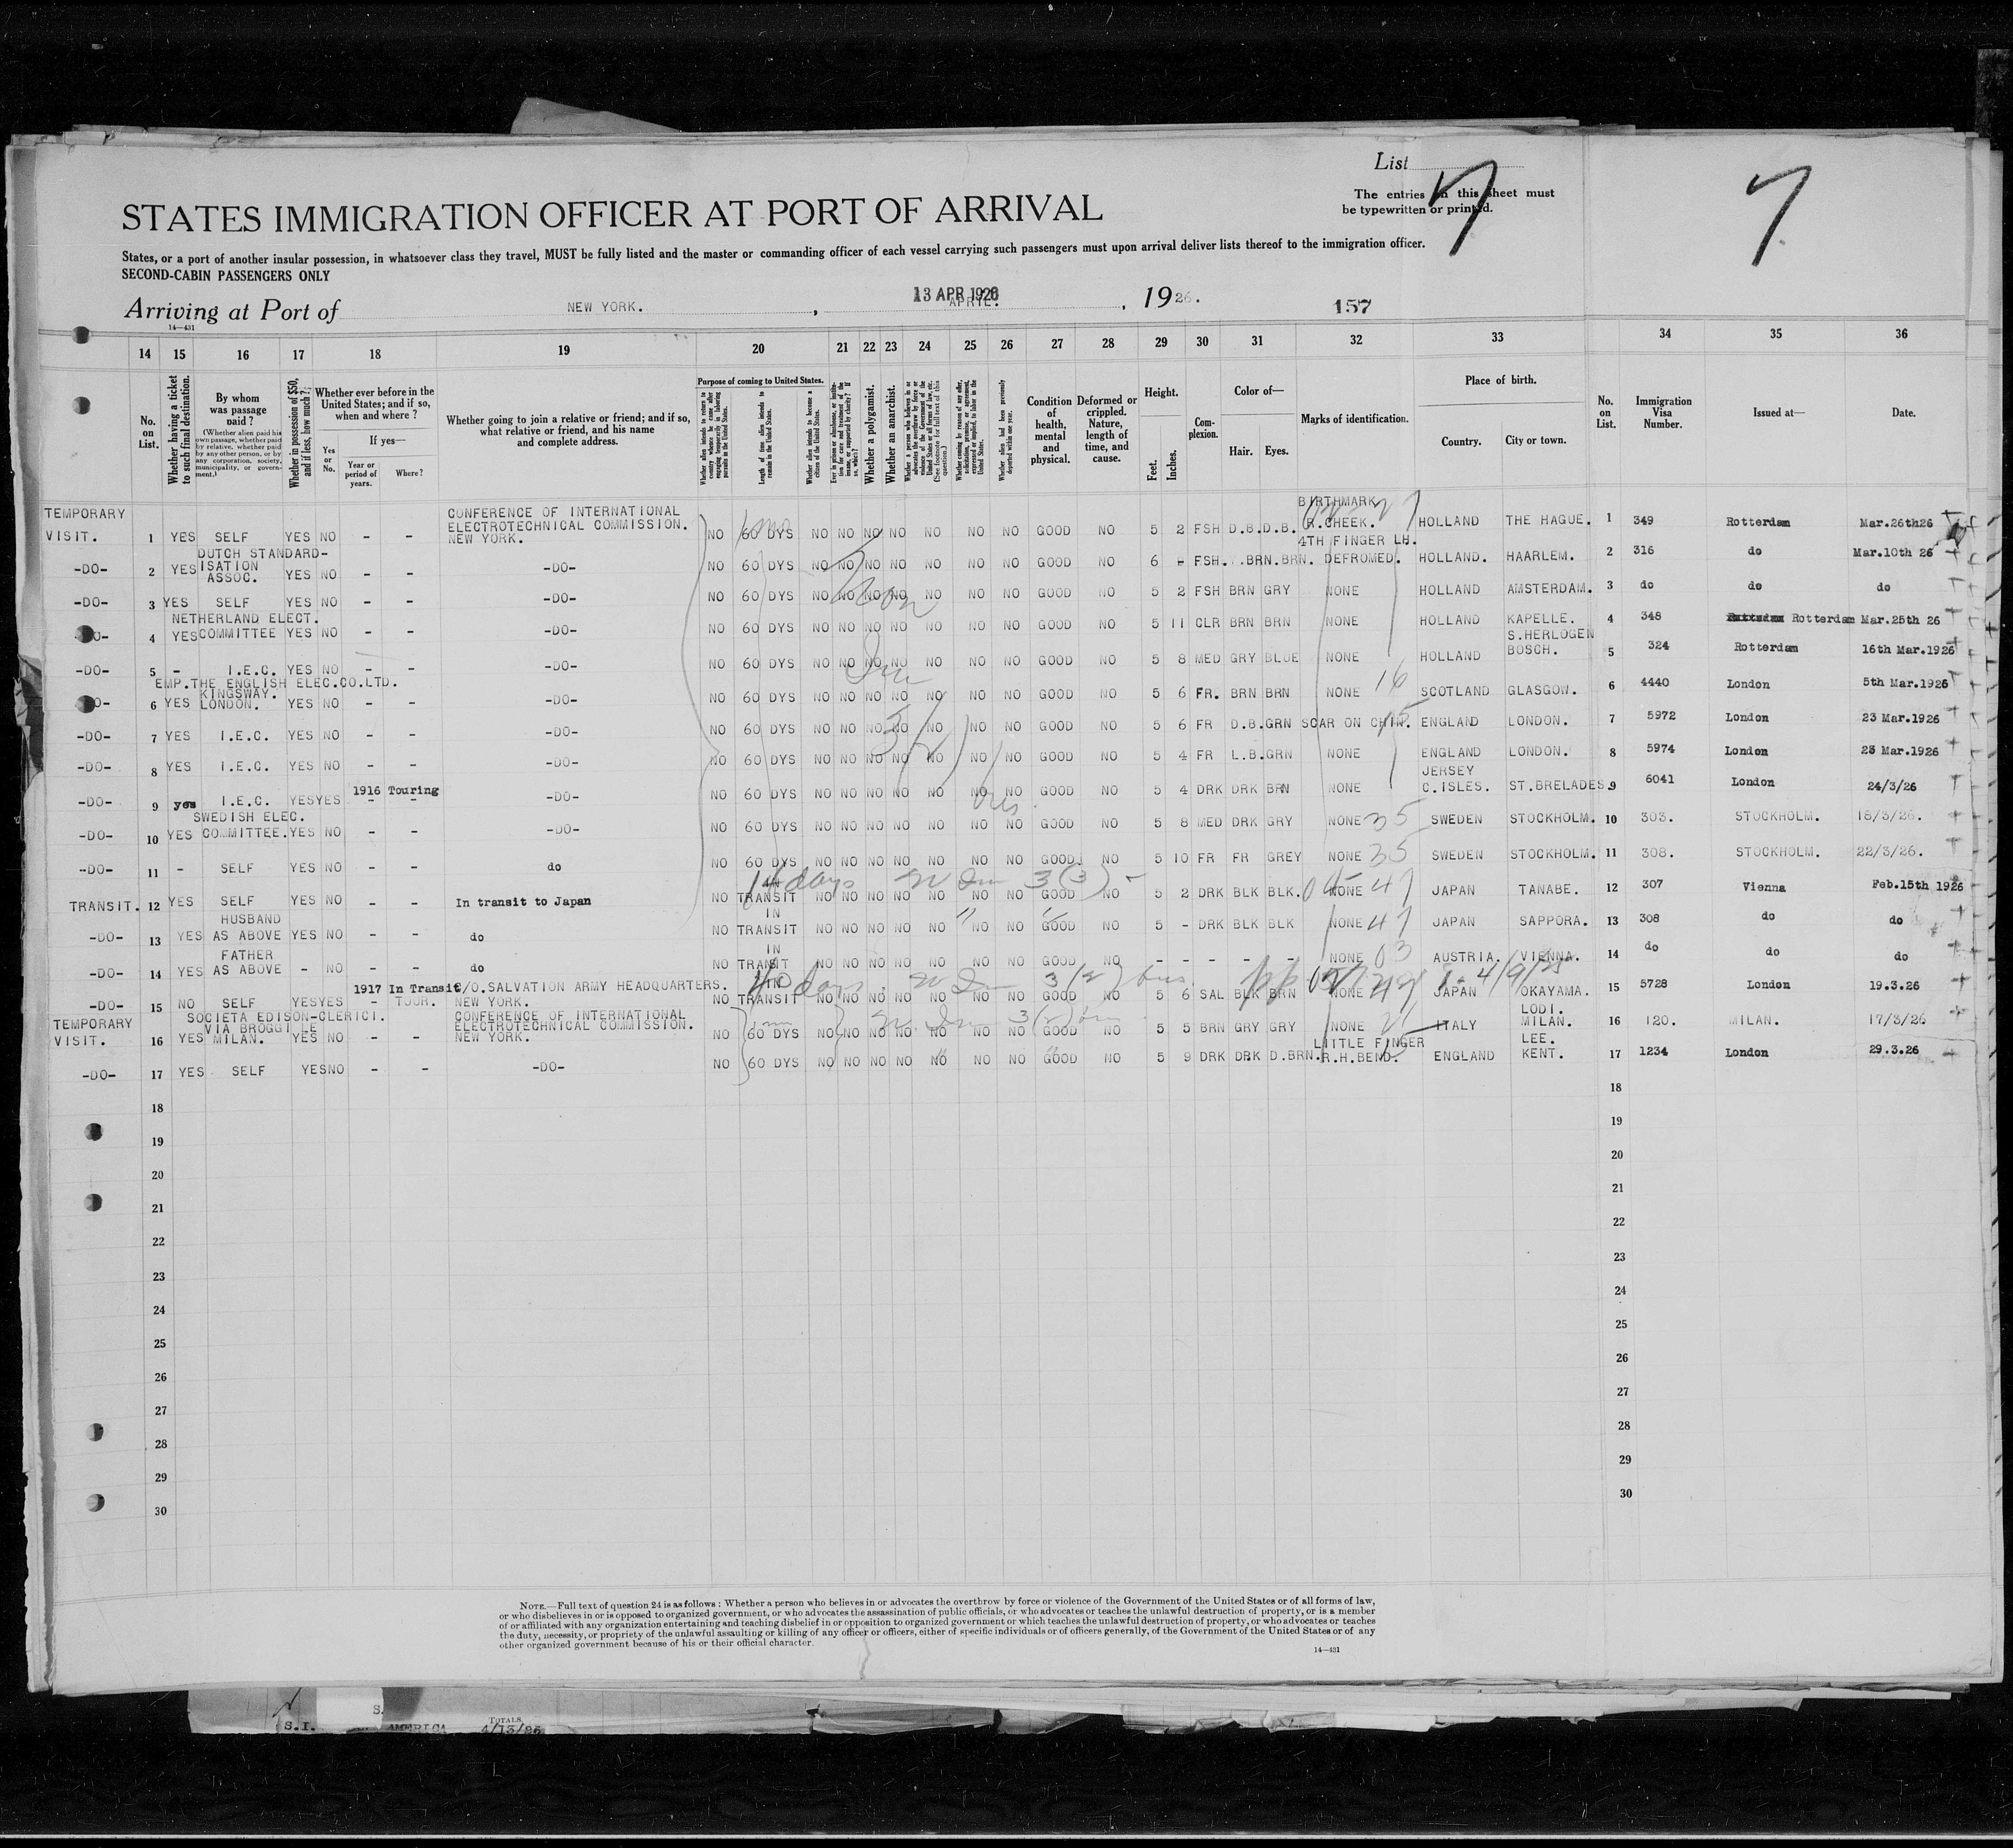 List 7 7
The entries on this sheet must
be typewritten or printed.
STATES IMMIGRATION OFFICER AT PORT OF ARRIVAL
States, or a port of another insular possession, in whatsoever class they travel, MUST be fully listed and the master or commanding officer of each vessel carrying such passengers must upon arrival deliver lists thereof to the immigration officer.
SECOND-CABIN PASSENGERS ONLY
Arriving at Port of NEW YORK. , 13 APR 1926 APRIL. , 1926. 157
14—431
14 15 16 17 18 19 20 21 22 23 24 25 26 27 28 29 30 31 32 33 34 35 36
No. on List.
Whether having a ticket to such final destination.
By whom was passage paid?
(Whether alien paid his own passage, whether paid by relative, whether paid by any other person, or by any corporation, society, municipality, or government.)
Whether in possession of $50, and if less, how much?
Whether ever before in the United States; and if so, when and where?
Yes or No.
If yes—
Year or period of years.
Where?
Whether going to join a relative or friend; and if so, what relative or friend, and his name and complete address.
Purpose of coming to United States.
Length of time alien intends to remain in the United States.
Whether alien intends to become a citizen of the United States.
Whether a polygamist.
Whether an anarchist.
Condition of health, mental and physical.
Deformed or crippled. Nature, length of time, and cause.
Height.
Feet. Inches.
Complexion.
Color of—
Hair. Eyes.
Marks of identification.
Place of birth.
Country. City or town.
No. on List.
Immigration Visa Number.
Issued at—
Date.
TEMPORARY VISIT. 1 YES SELF YES NO - - CONFERENCE OF INTERNATIONAL ELECTROTECHNICAL COMMISSION. NEW YORK. NO 60 DYS NO NO NO NO NO NO NO GOOD NO 5 2 FSH D.B. D.B. BIRTHMARK R.CHEEK. HOLLAND THE HAGUE. 1 349 Rotterdam Mar.26th26
-DO- 2 YES DUTCH STANDARD-ISATION ASSOC. YES NO - - -DO- NO 60 DYS NO NO NO NO NO NO NO GOOD NO 6 - FSH. BRN. BRN. 4TH FINGER LH. DEFROMED. HOLLAND. HAARLEM. 2 316 do Mar.10th 26
-DO- 3 YES SELF YES NO - - -DO- NO 60 DYS NO NO NO NO NO NO NO GOOD NO 5 2 FSH BRN GRY NONE HOLLAND AMSTERDAM. 3 do do do
-DO- 4 YES NETHERLAND ELECT. COMMITTEE YES NO - - -DO- NO 60 DYS NO NO NO NO NO NO NO GOOD NO 5 11 CLR BRN BRN NONE HOLLAND KAPELLE. 4 348 Rotterdam Mar.25th 26
-DO- 5 - I.E.C. YES NO - - -DO- NO 60 DYS NO NO NO NO NO NO NO GOOD NO 5 8 MED GRY BLUE NONE HOLLAND S.HERLOGEN BOSCH. 5 324 Rotterdam 16th Mar.1926
-DO- 6 YES EMP.THE ENGLISH ELEC.CO.LTD. KINGSWAY. LONDON. YES NO - - -DO- NO 60 DYS NO NO NO NO NO NO NO GOOD NO 5 6 FR. BRN BRN NONE 16 SCOTLAND GLASGOW. 6 4440 London 5th Mar.1926
-DO- 7 YES I.E.C. YES NO - - -DO- NO 60 DYS NO NO NO NO NO NO NO GOOD NO 5 6 FR D.B. GRN SCAR ON CHIN. ENGLAND LONDON. 7 5972 London 23 Mar.1926
-DO- 8 YES I.E.C. YES NO - - -DO- NO 60 DYS NO NO NO NO NO NO NO GOOD NO 5 4 FR L.B. GRN NONE ENGLAND LONDON. 8 5974 London 23 Mar.1926
-DO- 9 yes I.E.C. YES YES 1916 Touring - - -DO- NO 60 DYS NO NO NO NO NO NO NO GOOD NO 5 4 DRK DRK BRN NONE JERSEY C.ISLES. ST.BRELADES. 9 6041 London 24/3/26
-DO- 10 YES SWEDISH ELEC. COMMITTEE. YES NO - - -DO- NO 60 DYS NO NO NO NO NO NO NO GOOD NO 5 8 MED DRK GRY NONE 35 SWEDEN STOCKHOLM. 10 303. STOCKHOLM. 18/3/26.
-DO- 11 - SELF YES NO - - do NO 60 DYS NO NO NO NO NO NO NO GOOD. NO 5 10 FR FR GREY NONE 35 SWEDEN STOCKHOLM. 11 308. STOCKHOLM. 22/3/26.
TRANSIT. 12 YES SELF YES NO - - In transit to Japan NO 14 days TRANSIT NO NO NO NO NO NO NO GOOD NO 5 2 DRK BLK BLK. NONE 47 JAPAN TANABE. 12 307 Vienna Feb.15th 1926
-DO- 13 YES HUSBAND AS ABOVE YES NO - - do NO IN TRANSIT NO NO NO NO NO NO NO GOOD NO 5 - DRK BLK BLK NONE 47 JAPAN SAPPORA. 13 308 do do
-DO- 14 YES FATHER AS ABOVE - NO - - do NO IN TRANSIT NO NO NO NO NO NO NO GOOD NO - - - - - NONE 03 AUSTRIA. VIENNA. 14 do do do
-DO- 15 NO SELF YES YES 1917 In Transit - TOUR. C/O.SALVATION ARMY HEADQUARTERS. NEW YORK. NO IN TRANSIT NO NO NO NO NO NO NO GOOD NO 5 6 SAL BLK BRN NONE JAPAN OKAYAMA. 15 5728 London 19.3.26
TEMPORARY VISIT. 16 YES SOCIETA EDISON-CLERICI. VIA BROGGI LE MILAN. YES NO - - CONFERENCE OF INTERNATIONAL ELECTROTECHNICAL COMMISSION. NEW YORK. NO 60 DYS NO NO NO NO NO NO NO GOOD NO 5 5 BRN GRY GRY NONE ITALY LODI. MILAN. 16 120. MILAN. 17/3/26
-DO- 17 YES SELF YES NO - - -DO- NO 60 DYS NO NO NO NO NO NO NO GOOD NO 5 9 DRK DRK D.BRN. LITTLE FINGER R.H.BEND. ENGLAND LEE. KENT. 17 1234 London 29.3.26
18 18
19 19
20 20
21 21
22 22
23 23
24 24
25 25
26 26
27 27
28 28
29 29
30 30
NOTE.—Full text of question 24 is as follows: Whether a person who believes in or advocates the overthrow by force or violence of the Government of the United States or of all forms of law,
or who disbelieves in or is opposed to organized government, or who advocates the assassination of public officials, or who advocates or teaches the unlawful destruction of property, or is a member
of or affiliated with any organization entertaining and teaching disbelief in or opposition to organized government or which teaches the unlawful destruction of property, or who advocates or teaches
the duty, necessity, or propriety of the unlawful assaulting or killing of any officer or officers, either of specific individuals or of officers generally, of the Government of the United States or of any
other organized government because of his or their official character.
14—431
S.I. AMERICA TOTALS 4/13/26